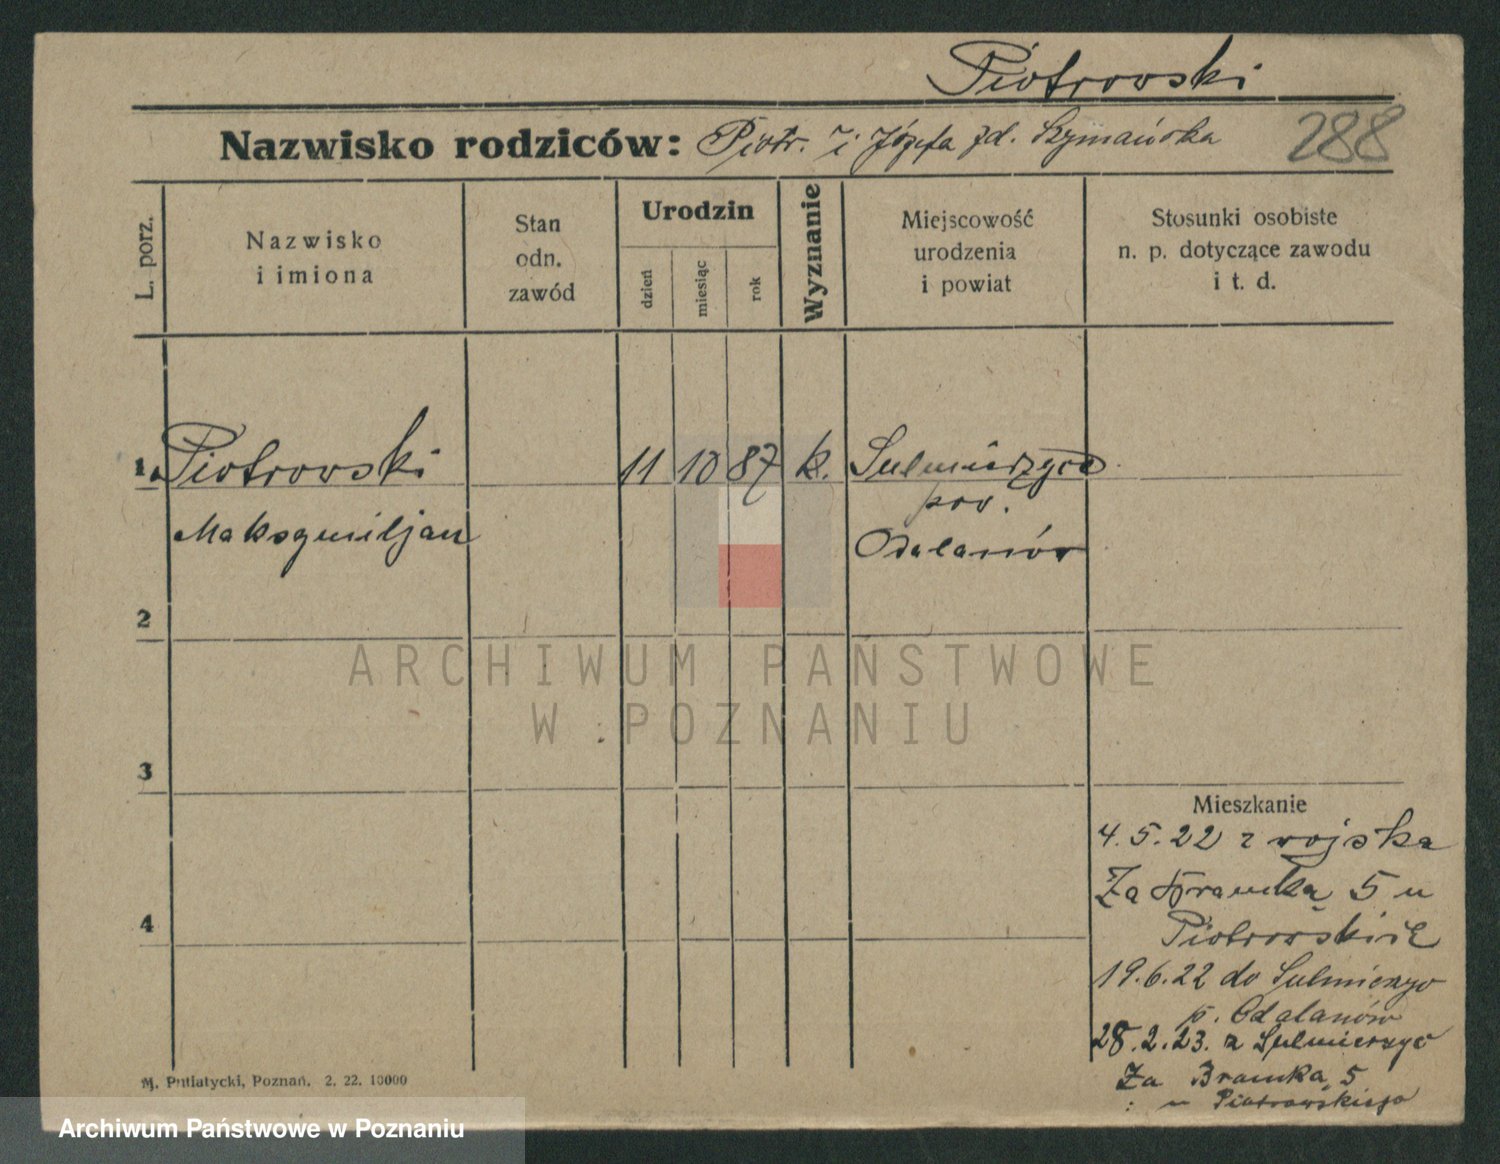 Piotrowski
Nazwisko rodziców: Piotr i Józefa zd. Szymańska
288
L. porz.
Nazwisko
i imiona
Stan
odn.
zawód
Urodzin
dzień
miesiąc
rok
Wyznanie
Miejscowość
urodzenia
i powiat
Stosunki osobiste
n. p. dotyczące zawodu
i t. d.
1. Piotrowski 11 10 87 k. Sulmierzyce
pow.
Maksymiljan Odalanów
2
ARCHIWUM PAŃSTWOWE
W POZNANIU
3
Mieszkanie
4.5.22 z wojska
Za Bramką 5 u
4
19.6.22 do Sulmierzyc
p. Odalanów
28.2.23. z Sulmierzyc
Za Bramką 5
u Piotrowskiego
M. Putiatycki, Poznań. 2. 22. 10000
Archiwum Państwowe w Poznaniu